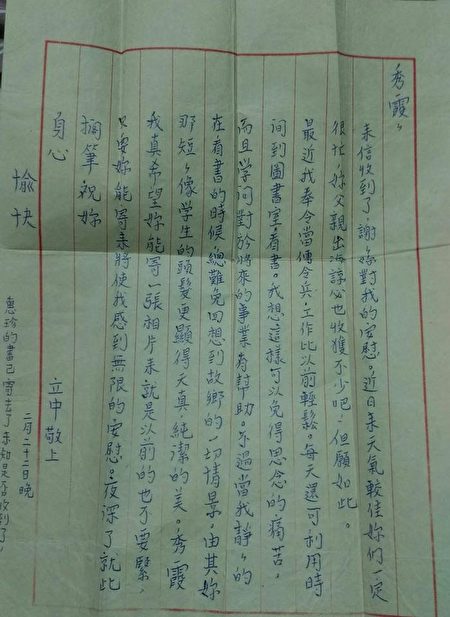 秀霞：
来信收到了，謝謝妳對我的安慰。近日来天氣較佳妳們一定
很忙，妳父親出海諒必也收獲不少吧！但願如此。
最近我奉令當傳令兵，工作比以前輕鬆。每天還可利用時
间到圖書室看書。我想這樣可以免得思念的痛苦。
而且学问對於將來的事業有幫助。不過當我静々的
在看書的時候總難免回想到故鄉的一切情景。由其妳
那短々像学生的頭髮更顯得天真純潔的美。秀霞
我真希望妳能寄一張相片来就是以前的也不要緊，
只要妳能寄来將使我感到無限的安慰。夜深了就此
擱筆祝妳
身心
愉快
立中 敬上
二月二十二日晚
惠珍的書已寄去了未知是否收到了，